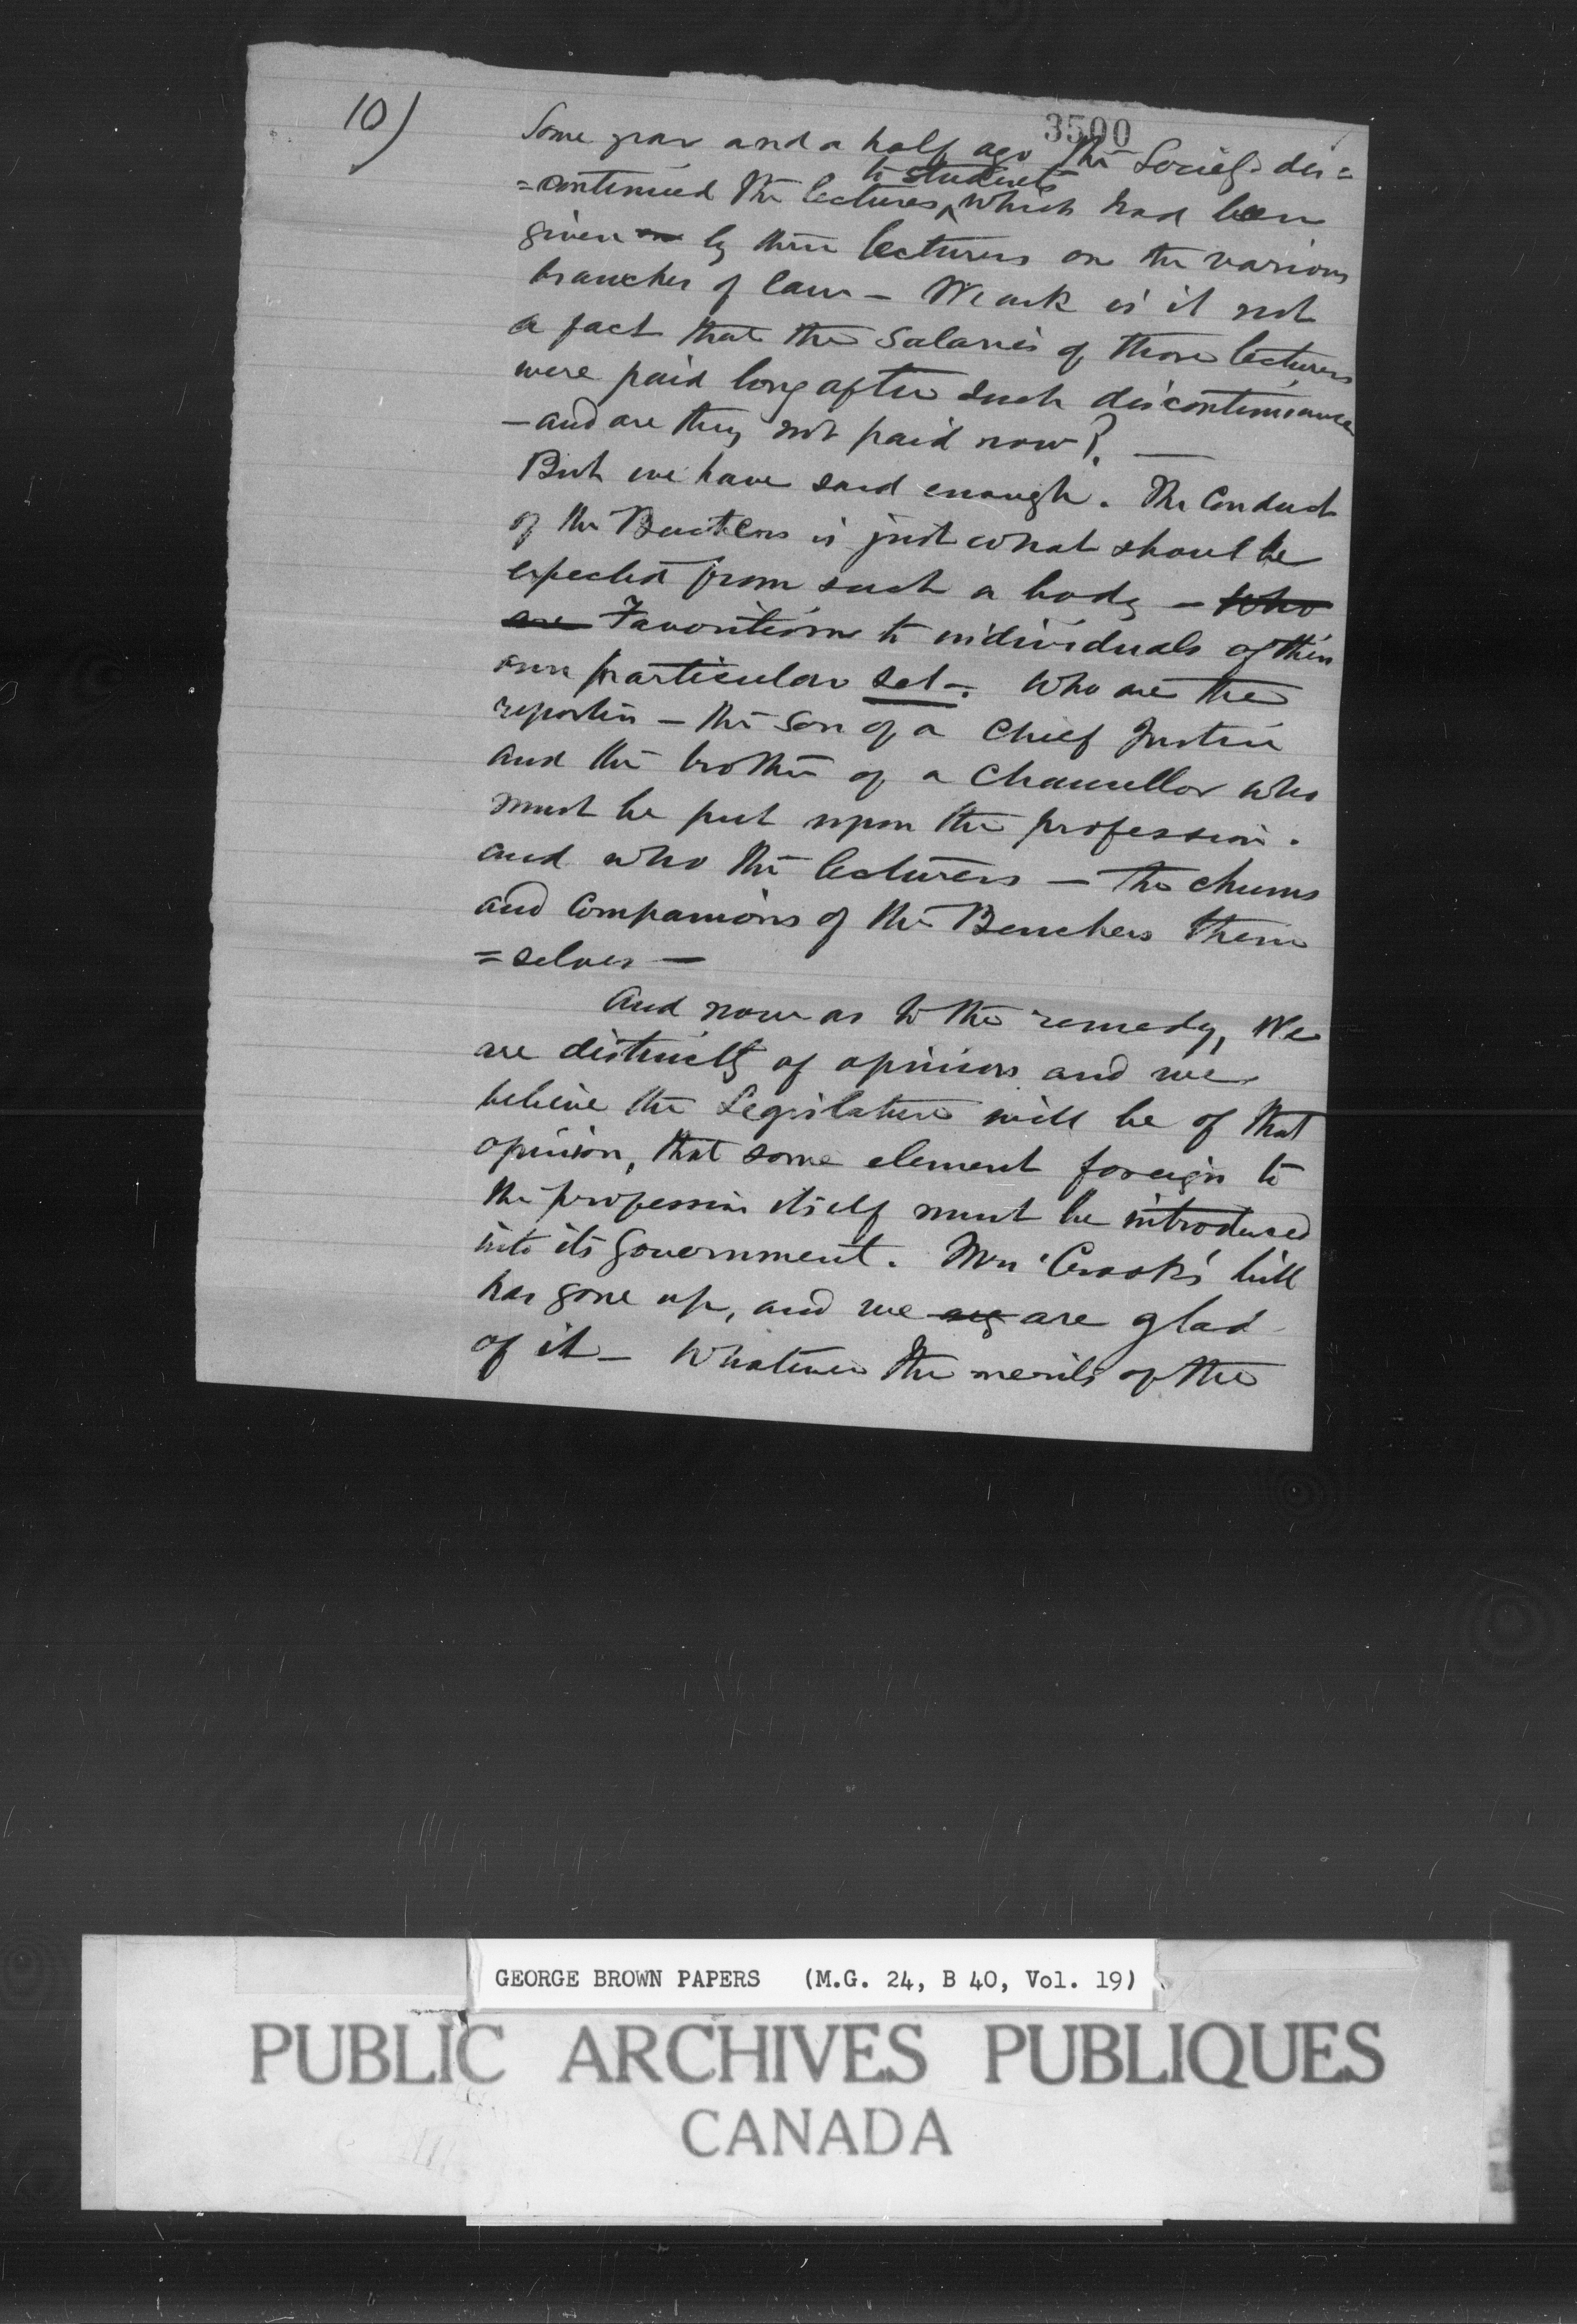 10)
3500
Some year and a half ago the Society dis=
to students
=continued the lectures ^ which had been
given by three lecturers on the various
branches of law – We ask is it not
a fact that the Salaries of those lecturers
were paid long after such discontinuance
– and are they not paid now? —
But we have said enough. The Conduct
of the Benchers is just what shoul be
expected from such a body – who
are Favoritism to individuals of their
own particular set –. Who are the
reporters – the son of a Chief Justice
and the brother of a Chancellor who
must be put upon the profession.
and who the lecturers – the chums
and Companions of the Benchers them
=selves —
And now as to the remedy, We
are distinctly of opinion and we
believe the Legislature will be of that
opinion, that some element foreign to
the profession itself must be introduced
into its Government. Mr. Crooks' bill
has gone up, and we are glad
of it – Whatever the merits of the
GEORGE BROWN PAPERS (M.G. 24, B 40, Vol. 19)
PUBLIC ARCHIVES PUBLIQUES
CANADA